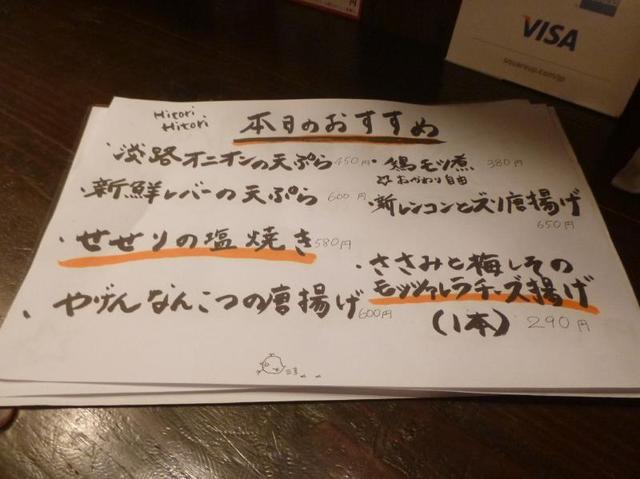 VISA
squareup.com/jp
Hitori
Hitori
本日のおすすめ
・淡路オニオンの天ぷら 450円
・新鮮レバーの天ぷら 600円
・せせりの塩焼き 580円
、やげんなんこつの唐揚げ 600円
・鶏モツ煮 380円
おかわり自由
・新レンコンとズリ唐揚げ
650円
・ささみと梅しその
モッツァレラチーズ揚げ
(1本) 290円